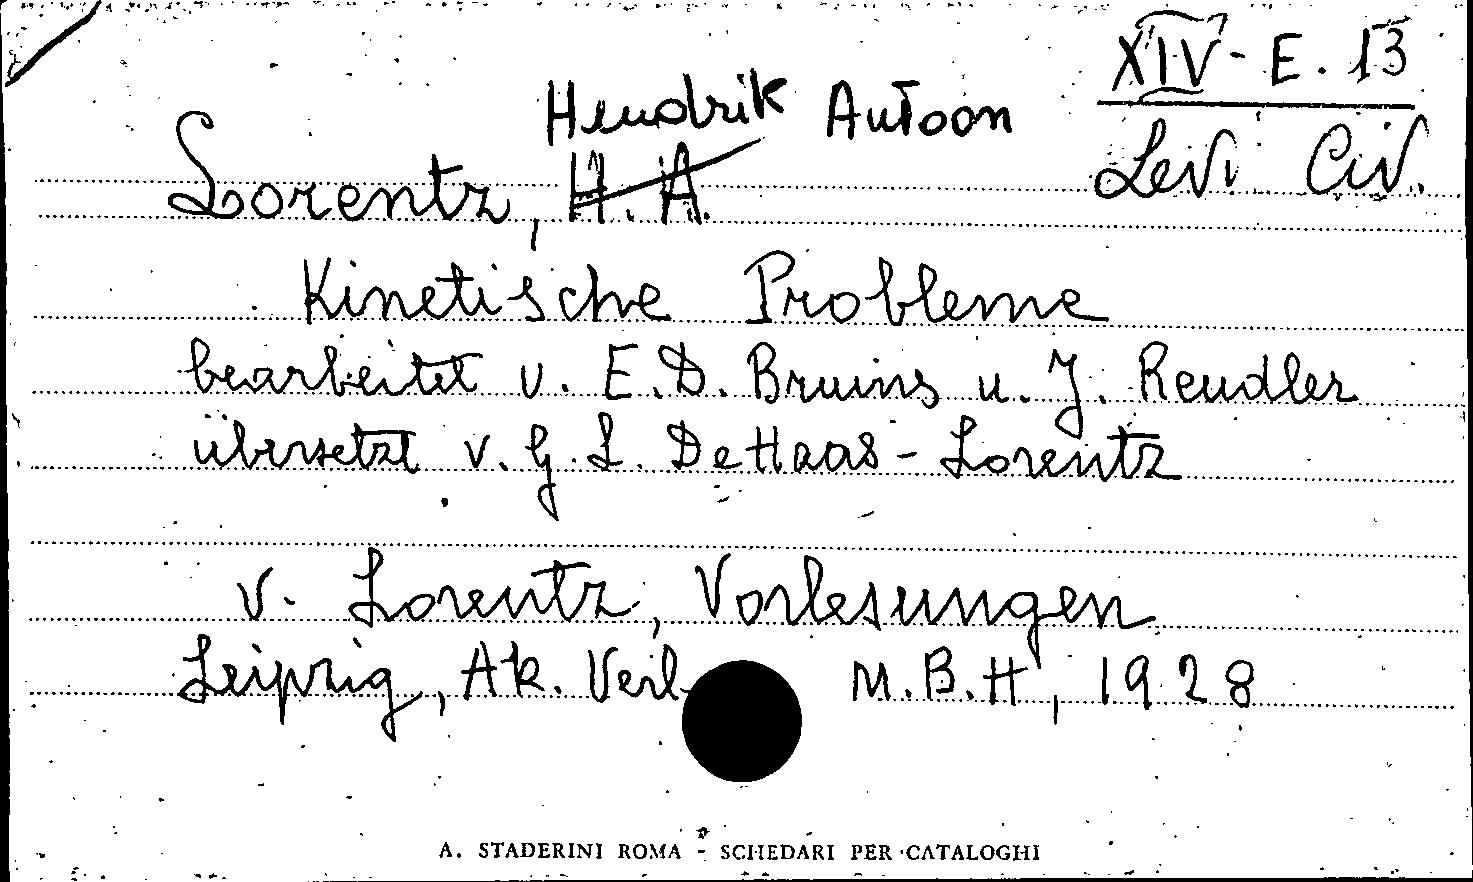 XIV - E. 13
Hendrik Antoon
Levi Civ.
Lorentz, H. A.
Kinetische Probleme
bearbeitet v. E. D. Bruins u. J. Reudler
übersetzt v. G. L. De Haas - Lorentz
v. Lorentz, Vorlesungen
Leipzig, Ak. Verl M.B.H, 1928
A. STADERINI ROMA - SCHEDARI PER CATALOGHI